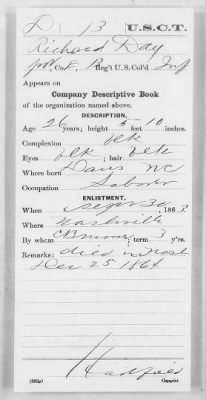 D | 13 | U.S.C.T.
Richard Day
Co. F, Reg't U.S. Col'd Inf
Appears on
Company Descriptive Book
of the organization named above.
DESCRIPTION.
Age 26 years; height 5 feet 10 inches.
Complexion blk
Eyes blk; hair blk
Where born NC
Occupation Laborer
ENLISTMENT.
When Sept 30, 1863.
Where Nashville
By whom; term 3 y'rs.
Remarks: died in Nash
Dec 25 1864
Hadfield
Copyist.